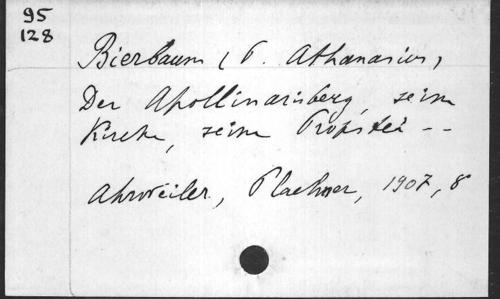 95
128
Bierbaum (P. Athanasius)
Der Apollinarisberg, seine
Kirche, seine Propstei --
Ahrweiler, Plachner, 1907, 8